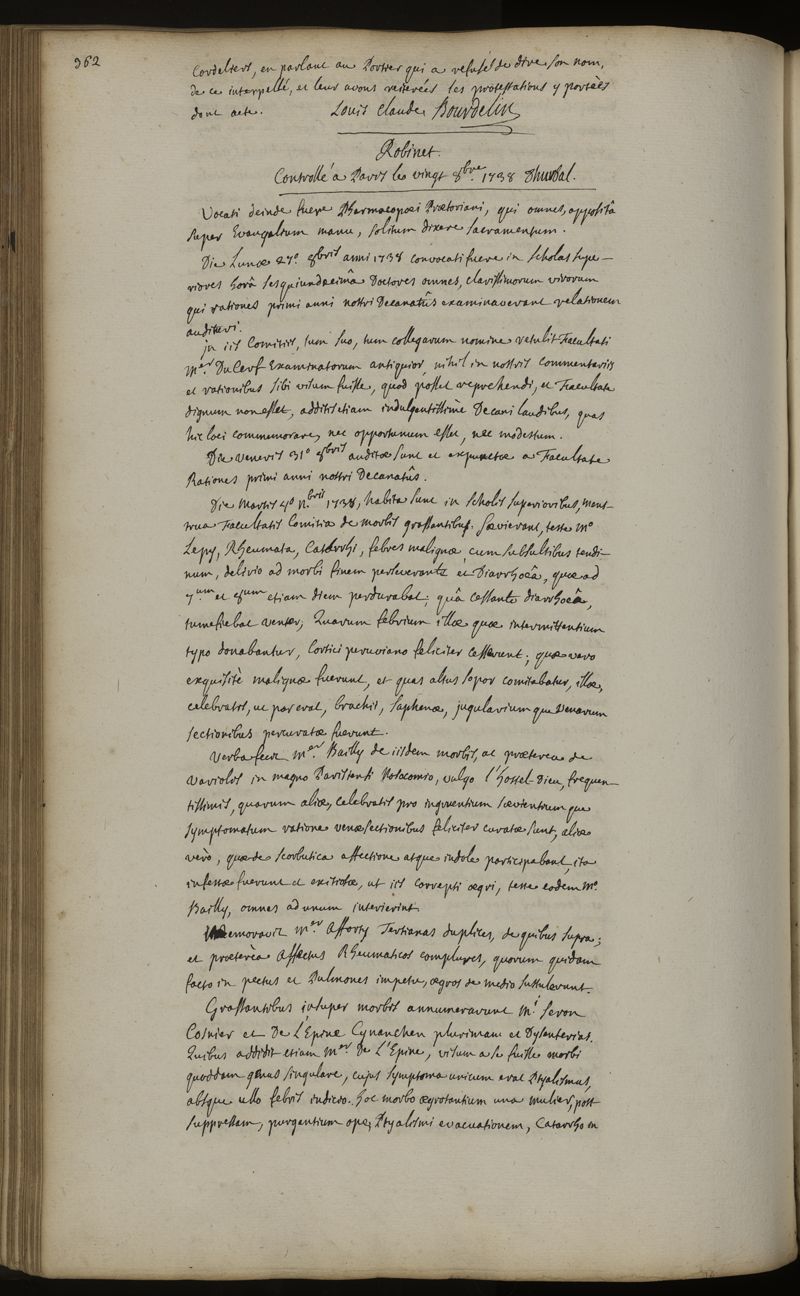 362
Cordeliers, en parlant au Portier qui a refusé de dire son nom,
de ce interpellé, et leur avons réiterées les protestations y portées
dont acte. Louis Claude Bourdelin
Robinet.
Controllé à Paris le vingt 8bre 1738 Thurbal.
Vocati deinde fuere Pharmacopœi Prætoriani, qui omnes, appositâ
super Evangelium manu, solitum dixere sacramentum.
Die Lunæ 27º 8bris anni 1738 convocati fuere in scholas supe-
riores horâ sesquiundecimâ Doctores omnes, clarissimorum virorum
qui rationes primi anni nostri Decanatûs examinaverant relationem
audituri.
in iis Comitiis, tum suo, tum collegarum nomine retulit Facultati
Mer DuCerf Examinatorum antiquior, nihil in nostris commentariis
et rationibus sibi visum fuisse, quod posset reprehendi, et Facultate
dignum non esset, additis etiam indulgentissimè Decani laudibus, quas
hic loci commemorare, nec opportunum esset, nec modestum.
Die Veneris 31º 8bris auditæ sunt et expunctæ a Facultate
Rationes primi anni nostri Decanatûs.
Die Martis 4º 9bris 1738, habita sunt in scholis superioribus, mens-
trua Facultatis Comitia de morbis grassantibus. sævierant, teste Mo
Lepy, Rheumata, Catarrhi, febres malignæ cum subsultibus tendi-
num, delirio ad morbi finem perseverante et Diarrhoeâ, quæ ad
7um et 8um etiam diem perdurabat; quâ cessante diarrhoeâ,
tumefiebat venter; Quarum febrium illæ quæ intermittentium
typo donabantur, Cortici peruviano feliciter cesserunt; quæ vero
exquisitè malignæ fuerunt, et quas altus sopor comitabatur, illæ,
celebratis, ut par erat, brachii, saphenæ, jugulariumque venarum
sectionibus percuratæ fuerunt.
Verba fecit Mer Bailly de iisdem morbis, ac præterea de
Variolis in magno Parisiensi Nosocomio, vulgo l'hostel Dieu, frequen-
tissimis, quarum aliæ, celebratis pro ingruentium sævientiumque
symptomatum ratione venæ sectionibus feliciter curatæ sunt, aliæ
verò, quæ de scorbutica affectione atque indole participabant, ita
infestæ fuerunt et exitiosæ, ut iis correpti ægri, teste eodem Mo.
Bailly, omnes ad unum interierint.
Memoravit Mer Afforty Tertianas duplices, de quibus supra;
et prætereà Affectus Rheumaticos complures, quorum quidam
facto in pectus et Pulmones impetu, ægros de medio sustulerunt.
Grassantibus insuper morbis annumerarunt Mri Seron
Cosnier et De L'Epine Cynanchen plurimam et Dysenterias.
Quibus addidit etiam Mer De L'Epine, visum a se fuisse morbi
quoddam genus singulare, cujus symptoma unicum erat Ptyalismus,
absque ullo febris indicio. hoc morbo ægrotantium una mulier, post
suppressam, purgantium ope, Ptyalismi evacuationem, Catarrho in